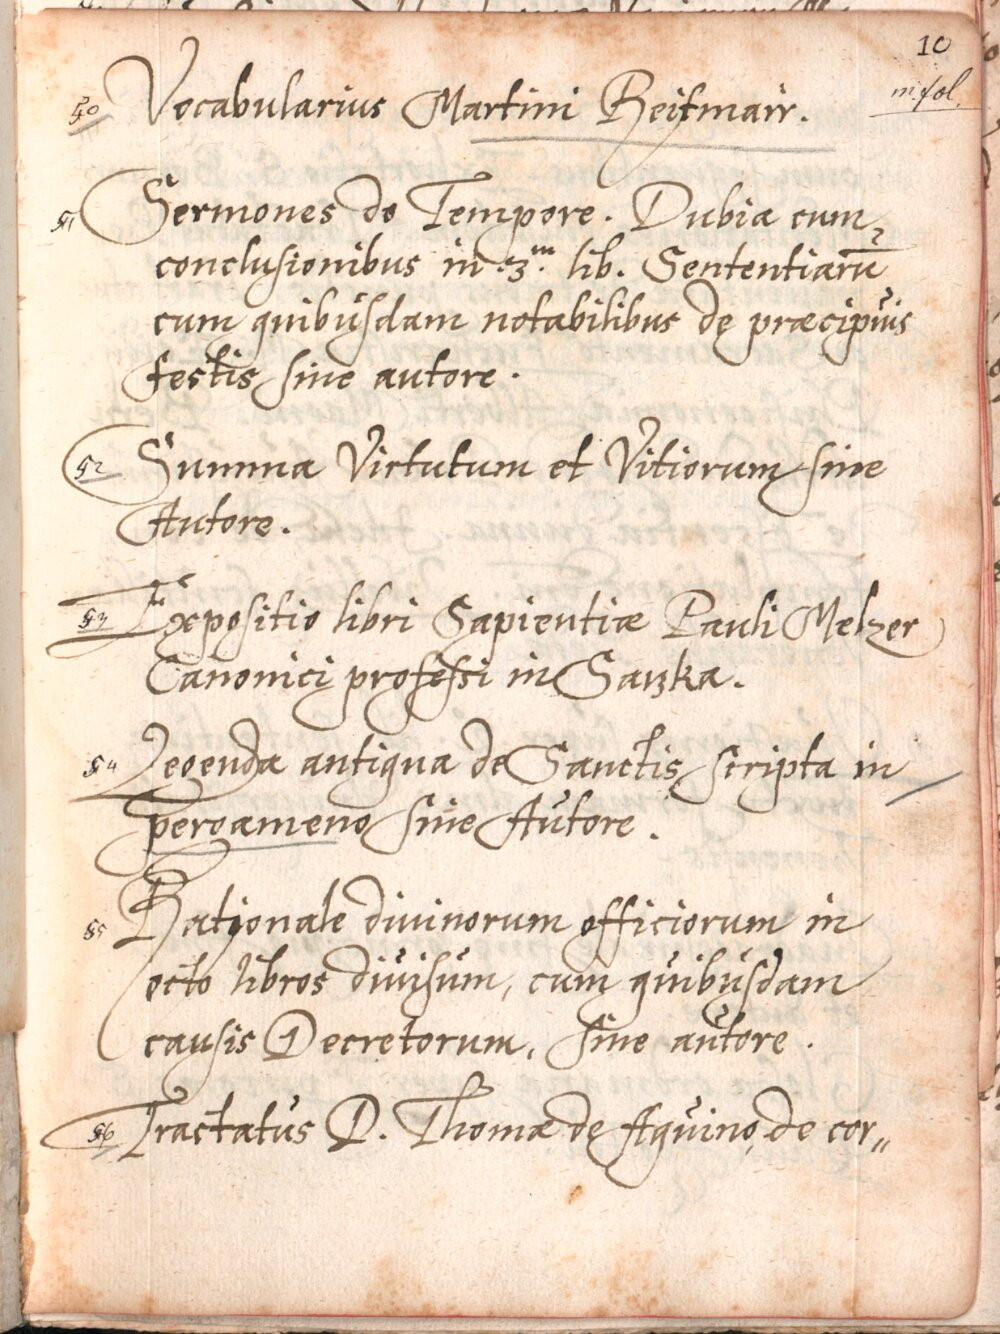 10
in fol.
50 Vocabularius Martini Reitmair.
51 Sermones de Tempore. Dubia cum
conclusionibus in .3.m lib. Sententiarū
cum quibusdam notabilibus de præcipuis
festis sine autore.
52 Summa Virtutum et Vitiorum sine
Autore.
53 Expositio libri Sapientiæ Pauli Melzer
Canonici professi in
54 Legenda antiqua de Sanctis scripta in
pergameno sine Autore.
55 Rationale divinorum officiorum in
octo libros divisum, cum quibusdam
causis Decretorum, sine autore.
56 Tractatus D. Thomæ de Aquino, de cor„